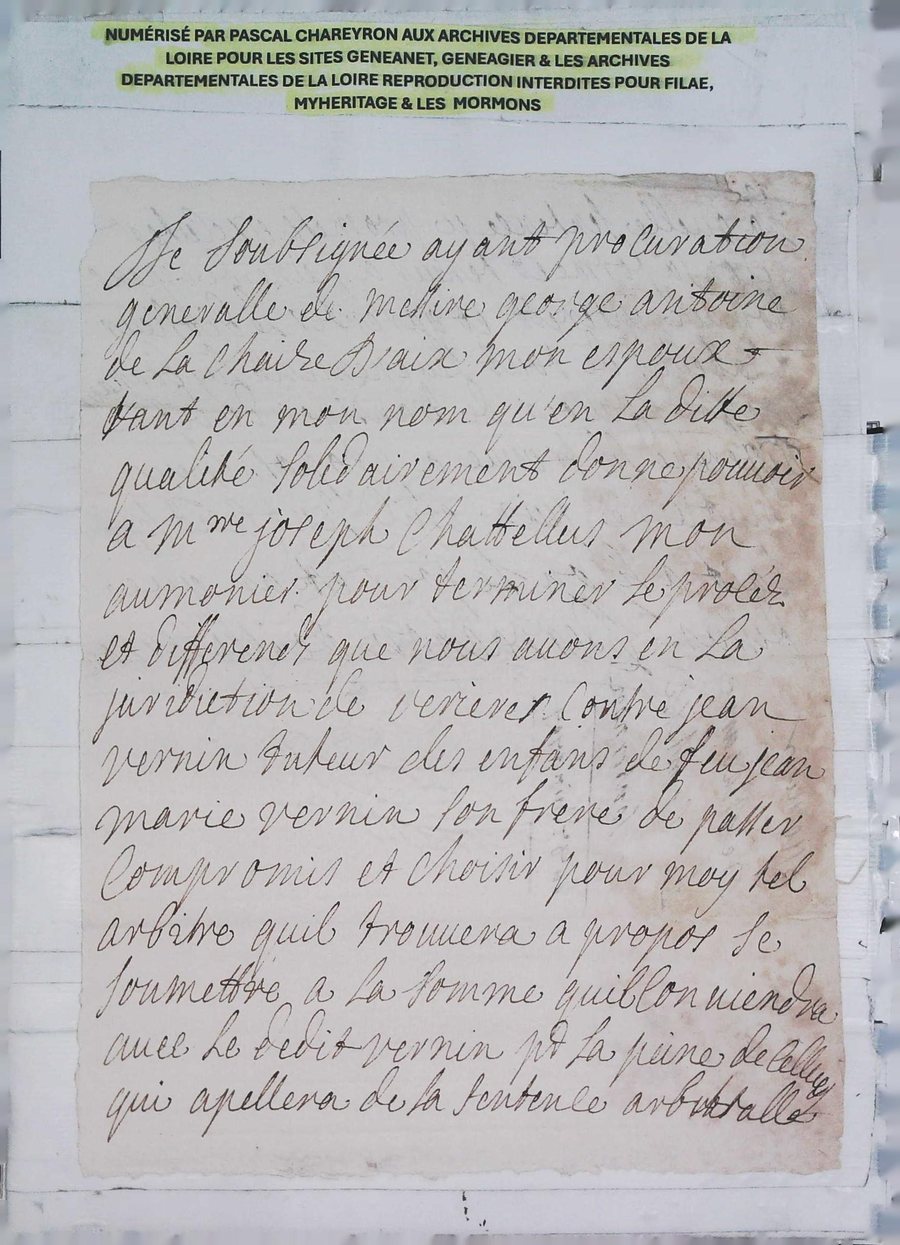 NUMÉRISÉ PAR PASCAL CHAREYRON AUX ARCHIVES DEPARTEMENTALES DE LA
LOIRE POUR LES SITES GENEANET, GENEAGIER & LES ARCHIVES
DEPARTEMENTALES DE LA LOIRE REPRODUCTION INTERDITES POUR FILAE,
MYHERITAGE & LES MORMONS
Je Soubsignée ayant procuration
generalle de messire george antoine
de La Chaize Daix mon espoux
tant en mon nom qu'en La ditte
qualité solidairement donne pouvoir
a Mre joseph Chattellus mon
aumonier pour terminer le procéz
et differends que nous avons en La
juridiction de verieres Contre jean
vernin tuteur des enfans de feu jean
marie vernin son frere de passer
Compromis et choisir pour moy tel
arbitre quil trouvera a propos se
soumettre a La somme quil Conviendra
avec Le dedit vernin pd La peine de Celluy
qui apellera de La sentence arbitralle